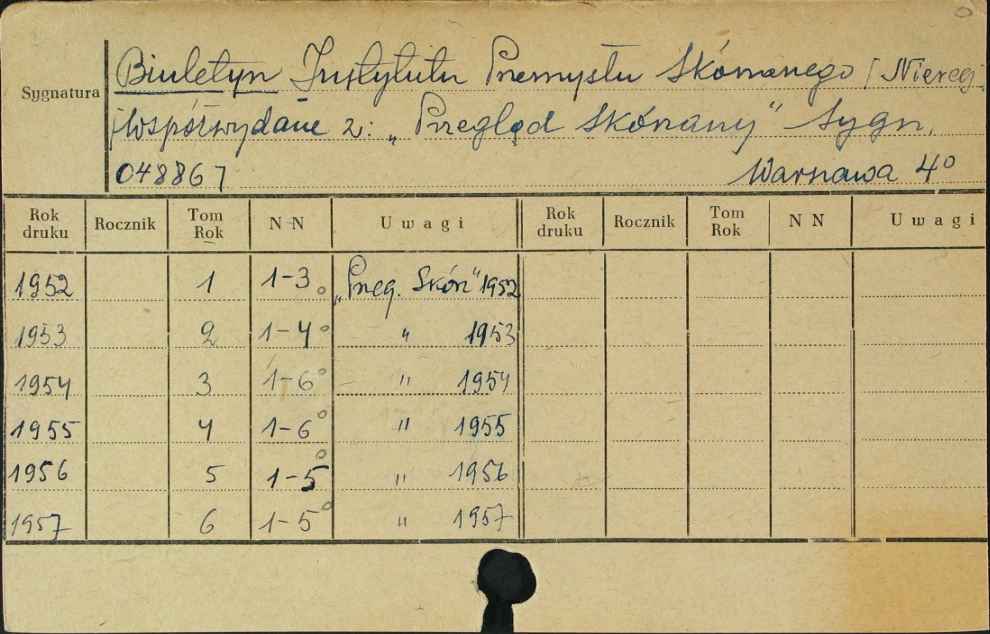 Sygnatura
Biuletyn Instytutu Przemysłu Skórzanego / Niereg.
Współwydane z: „Przegląd Skórzany" Sygn.
048867 Warszawa 4°
Rok druku Rocznik Tom Rok N N Uwagi Rok druku Rocznik Tom Rok N N Uwagi
1952 1 1-3° „Przeg. Skórz" 1952
1953 2 1-4° " 1953
1954 3 1-6° " 1954
1955 4 1-6° " 1955
1956 5 1-5° " 1956
1957 6 1-5° " 1957